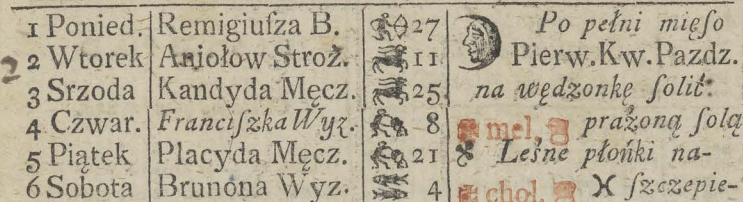 1 Ponied. Remigiuſza B. 27 Po pełni mięſo
2 Wtorek Aniołow Stroż. 11 Pierw. Kw. Pazdz.
3 Srzoda Kandyda Męcz. 25 na wędzonkę ſolić.
4 Czwar. Franciſzka Wyz. 8 mel. prażoną ſolą
5 Piątek Placyda Męcz. 21 Leśne płońki na-
6 Sobota Brunona Wyz. 4 chol. ſzczepie-
2